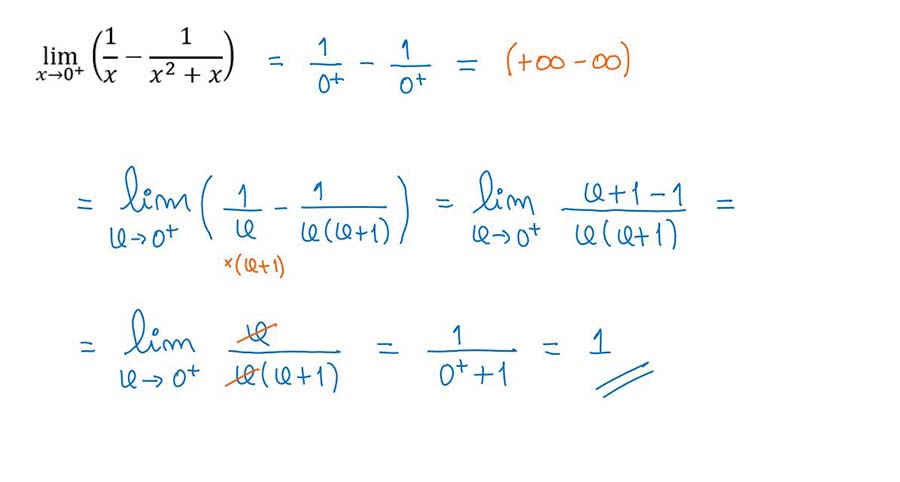 lim x→0⁺ (1/x − 1/(x² + x)) = 1/0⁺ − 1/0⁺ = (+∞ −∞)
= lim x→0⁺ (1/x − 1/(x(x+1))) = lim x→0⁺ (x+1−1)/(x(x+1)) =
×(x+1)
= lim x→0⁺ x/(x(x+1)) = 1/(0⁺+1) = 1